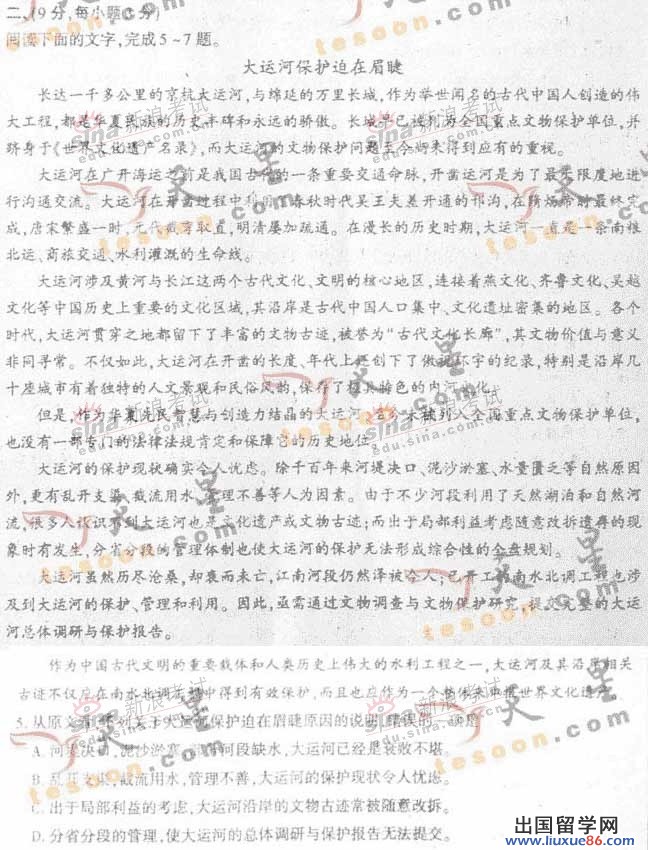 二、(9分,每小题3分)
阅读下面的文字,完成5~7题。
大运河保护迫在眉睫
长达一千多公里的京杭大运河,与绵延的万里长城,作为举世闻名的古代中国人创造的伟
大工程,都是华夏民族的历史丰碑和永远的骄傲。长城早已被列为全国重点文物保护单位,并
跻身于《世界文化遗产名录》,而大运河的文物保护问题至今尚未得到应有的重视。
大运河在广开海运之前是我国古代的一条重要交通命脉,开凿运河是为了最大限度地进
行沟通交流。大运河在开凿过程中利用了春秋时代吴王夫差开通的邗沟,在隋炀帝时最终完
成,唐宋繁盛一时,元代截弯取直,明清屡加疏通。在漫长的历史时期,大运河一直是一条南粮
北运、商旅交通、水利灌溉的生命线。
大运河涉及黄河与长江这两个古代文化、文明的核心地区,连接着燕文化、齐鲁文化、吴越
文化等中国历史上重要的文化区域,其沿岸是古代中国人口集中、文化遗址密集的地区。各个
时代,大运河贯穿之地都留下了丰富的文物古迹,被誉为“古代文化长廊”,其文物价值与意义
非同寻常。不仅如此,大运河在开凿的长度、年代上还创下了傲视环宇的纪录,特别是沿岸几
十座城市有着独特的人文景观和民俗风韵,保存了极其特色的内河文化。
但是,作为华夏先民智慧与创造力结晶的大运河,至今未被列入全国重点文物保护单位,
也没有一部专门的法律法规肯定和保障它的历史地位。
大运河的保护现状确实令人忧虑。除千百年来河堤决口、泥沙淤塞、水量匮乏等自然原因
外,更有乱开支渠、截流用水、管理不善等人为因素。由于不少河段利用了天然湖泊和自然河
流,很多人认识不到大运河也是文化遗产或文物古迹;而出于局部利益考虑随意改拆遗存的现
象时有发生,分省分段的管理体制也使大运河的保护无法形成综合性的全盘规划。
大运河虽然历尽沧桑,却衰而未亡,江南河段仍然泽被今人;已开工的南水北调工程也涉
及到大运河的保护、管理和利用。因此,亟需通过文物调查与文物保护研究,提交完整的大运
河总体调研与保护报告。
作为中国古代文明的重要载体和人类历史上伟大的水利工程之一,大运河及其沿岸相关
古迹不仅应在南水北调工程中得到有效保护,而且也应作为一个整体来申报世界文化遗产。
5. 从原文看,下列关于大运河保护迫在眉睫原因的说明,错误的一项是
A. 河堤决口,泥沙淤塞,河段缺水,大运河已经是衰败不堪。
B. 乱开支渠,截流用水,管理不善,大运河的保护现状令人忧虑。
C. 出于局部利益的考虑,大运河沿岸的文物古迹常被随意改拆。
D. 分省分段的管理,使大运河的总体调研与保护报告无法提交。
出国留学网
www.liuxue86.com